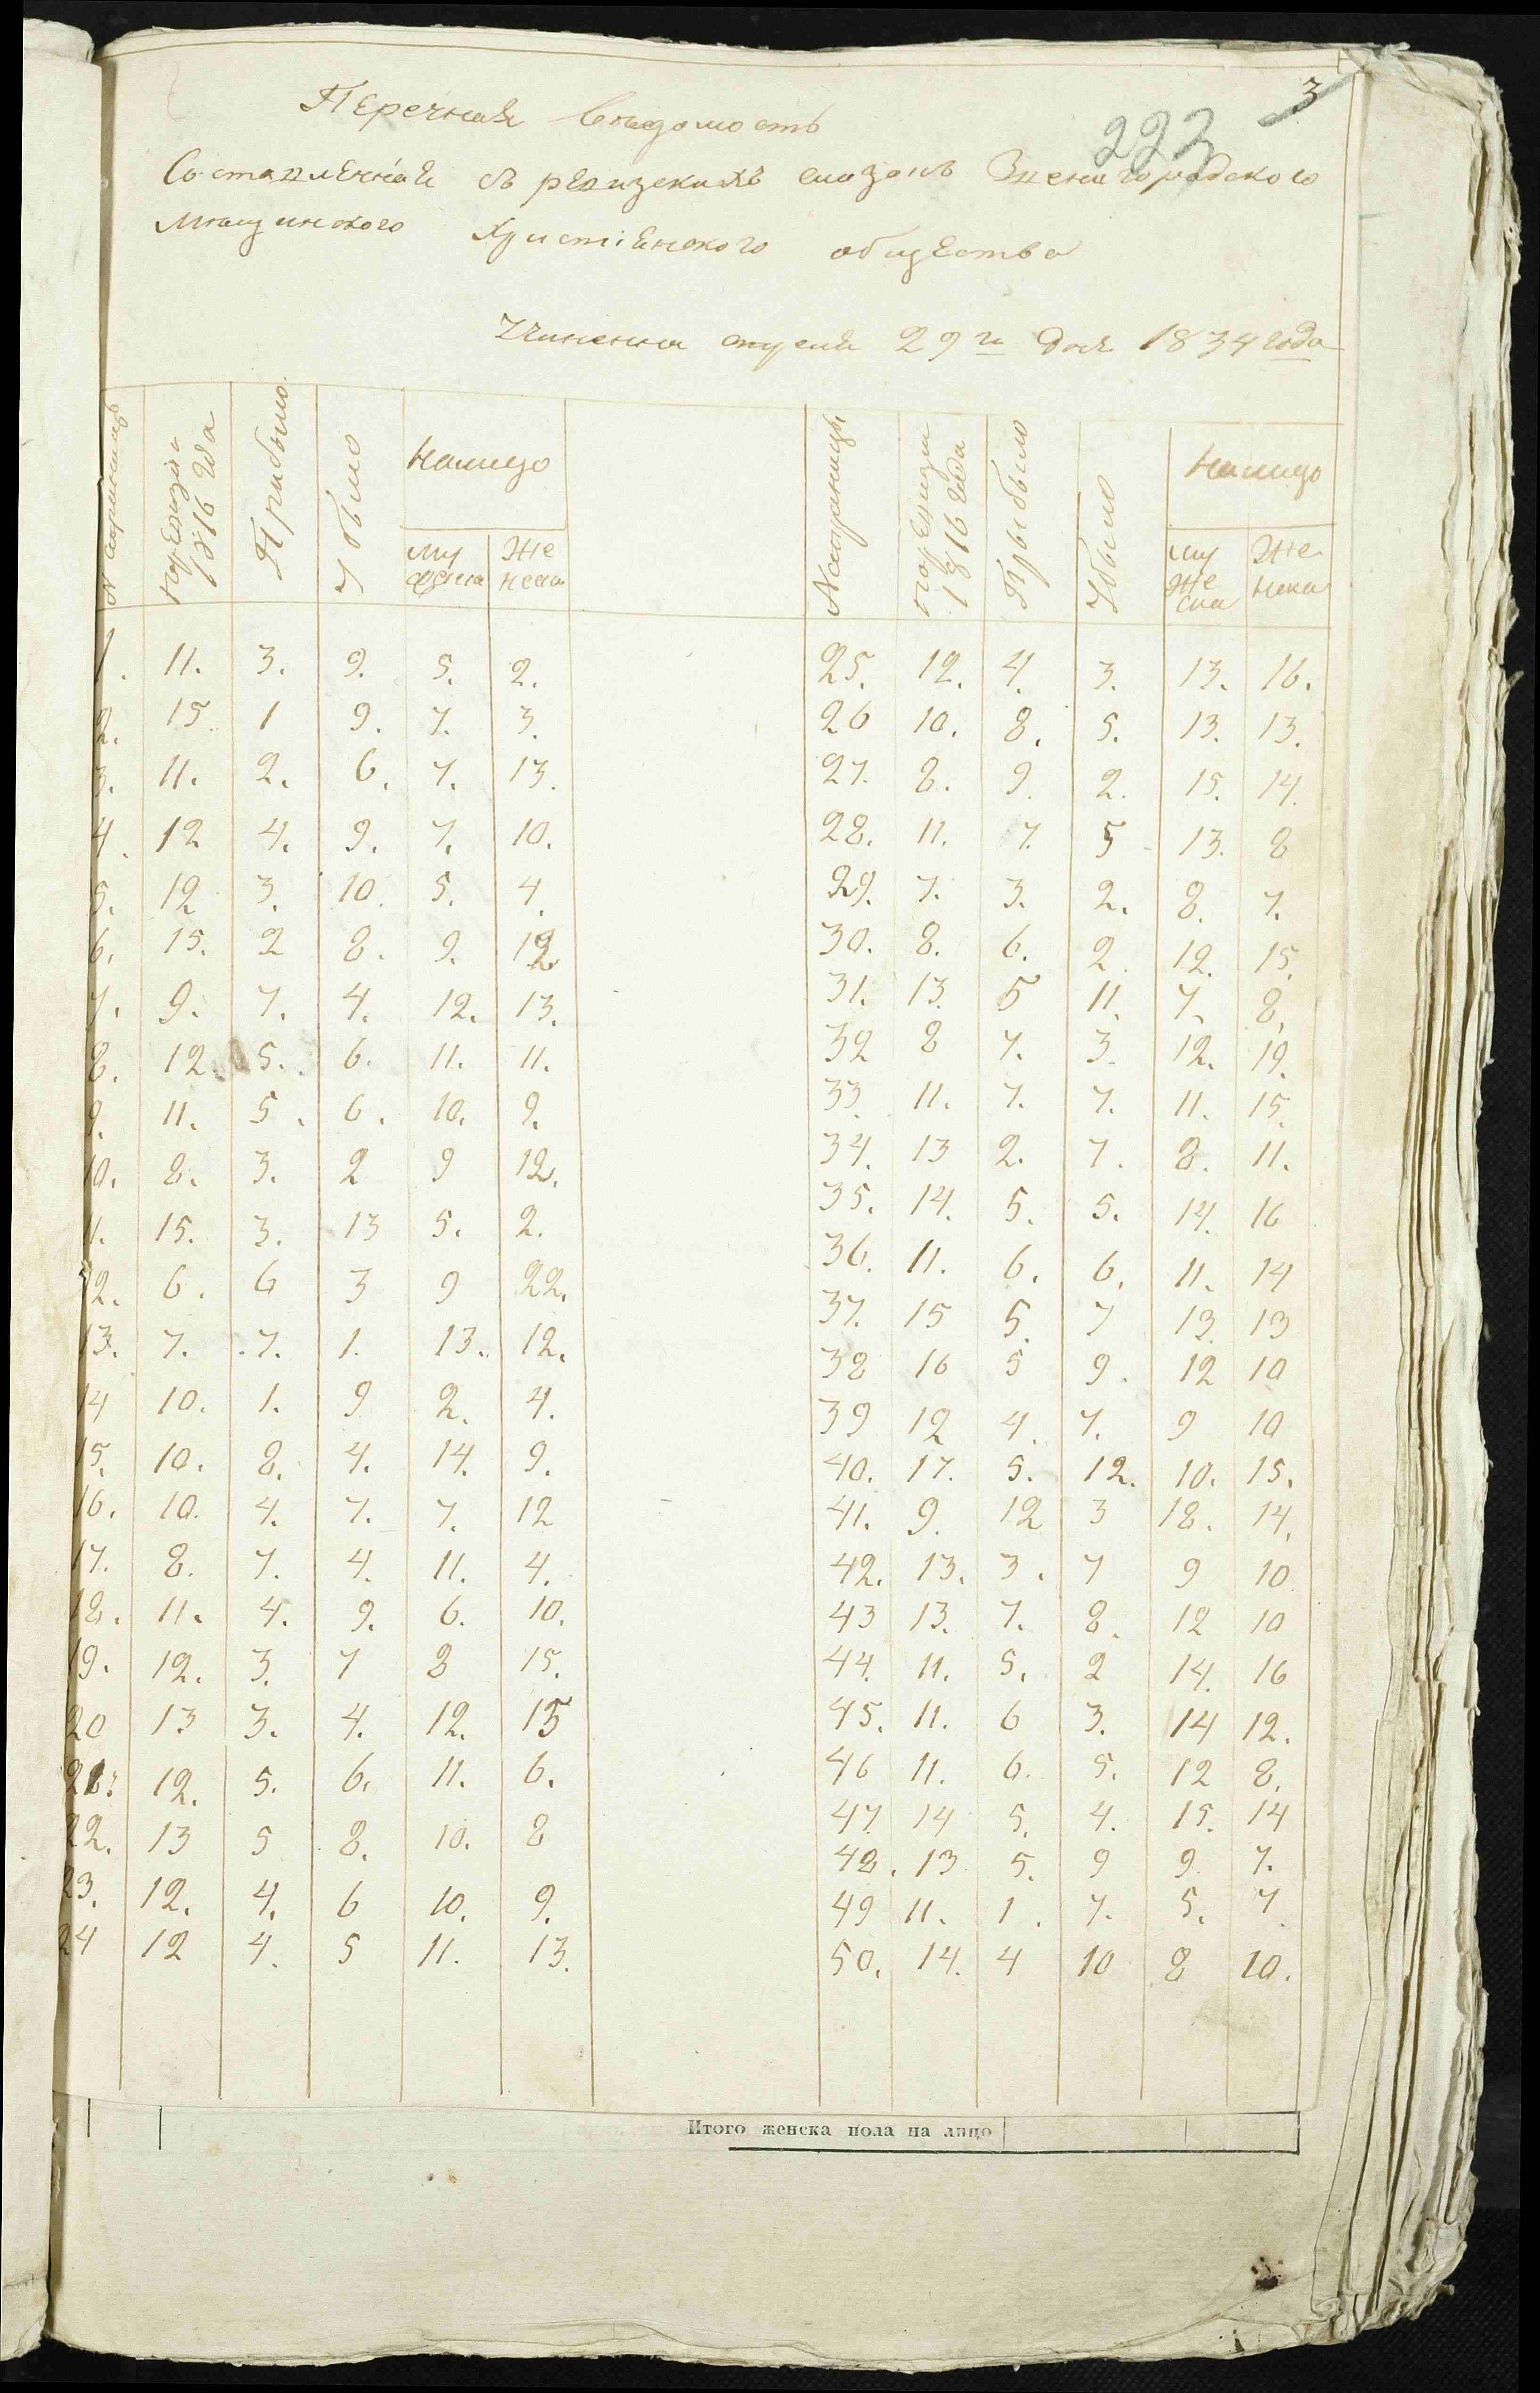 3
223
Перечная Ведомость
Составленная съ ревизскихъ сказокъ Звенигородского
Мещинского Христіенского общества
апреля 29го дня 1834 года
№ страницъ | По ревизіи 1816 года | Прибыло | Убыло | Налицо | № страницъ | По ревизіи 1816 года | Прыбыло | Убыло | Налицо
муженска | Же нска | му же ска | Же нска
1. 11. 3. 9. 5. 2. 25. 12. 4. 3. 13. 16.
2. 15 1 9. 7. 3. 26 10. 8. 5. 13. 13.
3. 11. 2. 6. 7. 13. 27. 8. 9. 2. 15. 14.
4. 12 4. 9. 7. 10. 28. 11. 7. 5 13. 8
5. 12 3. 10. 5. 4. 29. 7. 3. 2. 8. 7.
6. 15. 2 8. 9. 12 30. 8. 6. 2. 12. 15.
7. 9. 7. 4. 12. 13. 31. 13. 5 11. 7. 8.
8. 12. 5. 6. 11. 11. 32 8 7. 3. 12. 19.
9. 11. 5. 6. 10. 9. 33. 11. 7. 7. 11. 15.
10. 8. 3. 2 9 12. 34. 13 2. 7. 8. 11.
11. 15. 3. 13 5. 2. 35. 14. 5. 5. 14. 16
12. 6. 6 3 9 22. 36. 11. 6. 6. 11. 14
13. 7. 7. 1. 13. 12. 37. 15 5. 7 13. 13
14 10. 1. 9 2. 4. 38 16 5 9. 12 10
15. 10. 8. 4. 14. 9. 39 12 4. 7. 9 10
16. 10. 4. 7. 7. 12 40. 17. 5. 12. 10. 15.
17. 8. 7. 4. 11. 4. 41. 9. 12 3 18. 14.
18. 11. 4. 9. 6. 10. 42. 13. 3. 7 9 10
19. 12. 3. 7 8 15. 43 13. 7. 8. 12 10
20 13 3. 4. 12. 15 44. 11. 5. 2 14. 16
21. 12. 5. 6. 11. 6. 45. 11. 6 3. 14 12.
22. 13 5 8. 10. 8 46 11. 6. 5. 12 8.
23. 12. 4. 6 10. 9. 47 14 5. 4. 15. 14
24 12 4. 5 11. 13. 48. 13 5. 9 9. 7.
49 11. 1. 7. 5. 7.
50. 14. 4 10 8 10.
Итого женска пола на лицо